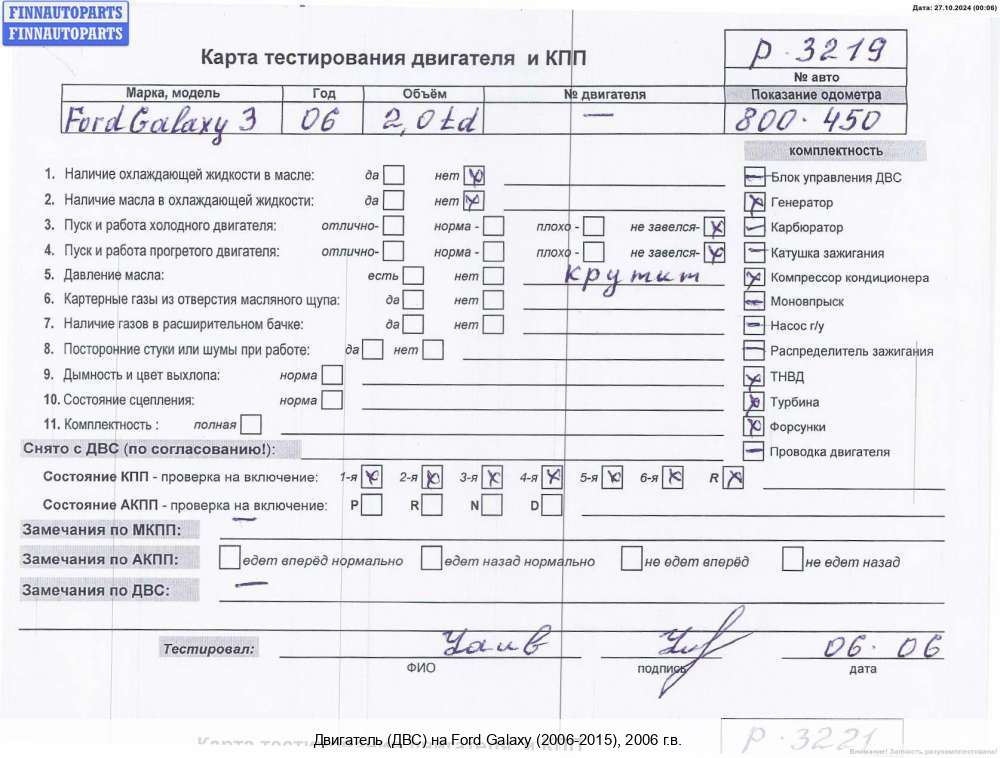 FINNAUTOPARTS
FINNAUTOPARTS
Дата: 27.10.2024 (00:06)
Карта тестирования двигателя и КПП
Р-3219
№ авто
Марка, модель Год Объём № двигателя Показание одометра
Ford Galaxy 3 06 2,0td — 800-450
комплектность
1. Наличие охлаждающей жидкости в масле: да нет
Блок управления ДВС
2. Наличие масла в охлаждающей жидкости: да нет
Генератор
3. Пуск и работа холодного двигателя: отлично- норма - плохо - не завелся-
Карбюратор
4. Пуск и работа прогретого двигателя: отлично- норма - плохо - не завелся-
Катушка зажигания
5. Давление масла: есть нет крутит
Компрессор кондиционера
6. Картерные газы из отверстия масляного щупа: да нет
Моновпрыск
7. Наличие газов в расширительном бачке: да нет
Насос г/у
8. Посторонние стуки или шумы при работе: да нет
Распределитель зажигания
9. Дымность и цвет выхлопа: норма
ТНВД
10. Состояние сцепления: норма
Турбина
11. Комплектность : полная
Форсунки
Снято с ДВС (по согласованию!):
Проводка двигателя
Состояние КПП - проверка на включение: 1-я 2-я 3-я 4-я 5-я 6-я R
Состояние АКПП - проверка на включение: P R N D
Замечания по МКПП: —
Замечания по АКПП: едет вперёд нормально едет назад нормально не едет вперёд не едет назад
Замечания по ДВС: —
Тестировал: 06.06
ФИО подпись дата
Карта тестирования двигателя и КПП
Р-3221
Двигатель (ДВС) на Ford Galaxy (2006-2015), 2006 г.в.
Внимание! Запчасть разукомплектована!